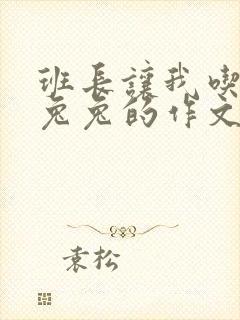 班长讓我喫
兔兔的作文
袁松